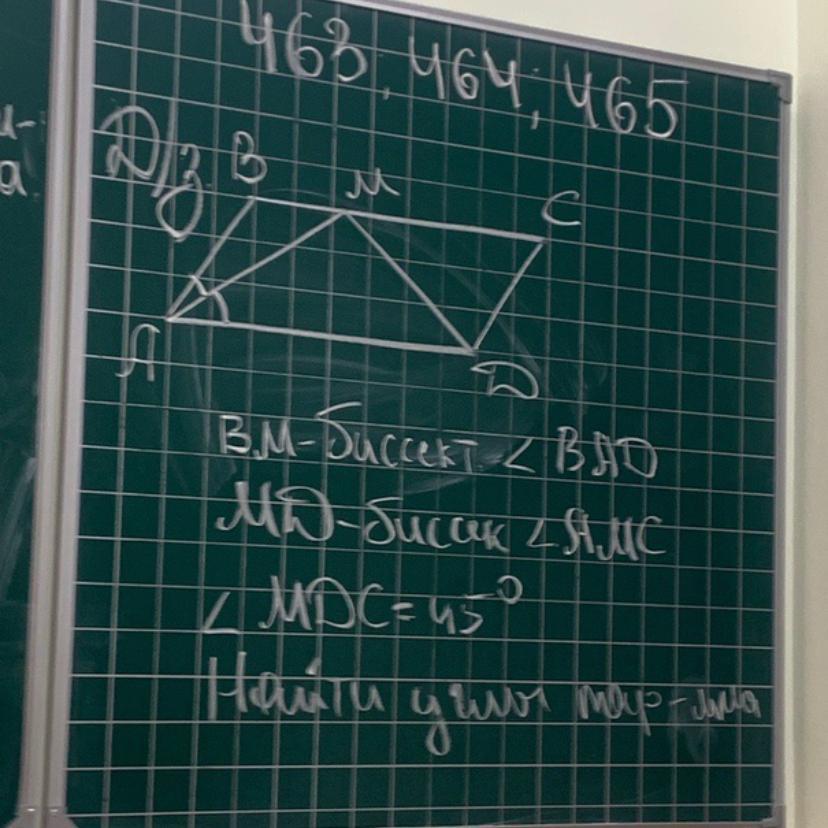 463, 464; 465
Д/з
B
M
C
A
D
BM-биссект ∠ BAD
MD-бисск ∠AMC
∠ MDC = 45°
Найти углы пар-мма